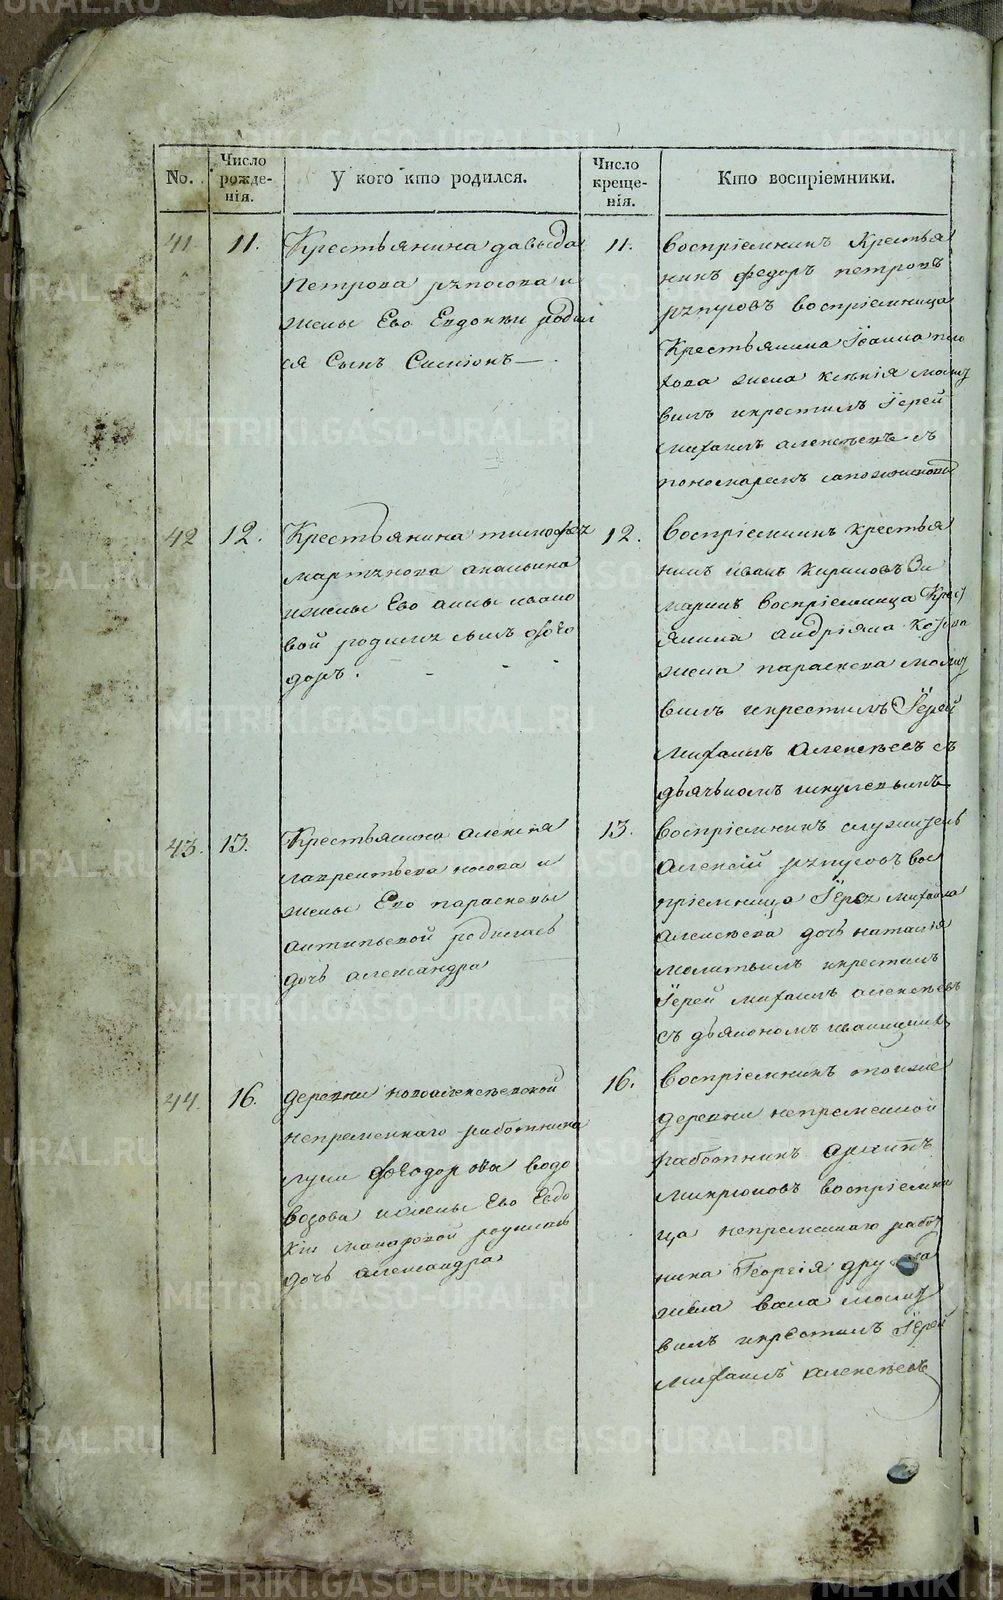 No.
Число рожде-нія.
У кого кто родился.
Число креще-нія.
Кто воспріемники.
41.
11.
Крестьянина давыда
петрова репосова и
жены Ево Евдокеи родил
ся Сынъ Симіонъ
11.
воспріемникъ крестья
нинъ федоръ петровъ
воспріемница
Крестьянина Іоанна
жена ксенія молит
вилъ икрестилъ Іерей
михаилъ алексеевъ съ
пономаремъ
42
12.
Крестьянина тимофея
мартынова ананьина
ижены Ево анны ивано
вой родился сынъ фео
доръ.
12.
воспріемникъ крестья
нинъ иванъ кириловъ Зи
маринъ воспріемница Крест
янина андріяна
жена параскева молит
вилъ икрестилъ Іерей
михаилъ алексеевъ съ
дьячкомъ
43.
13.
Крестьянина алексея
лаврентьева носова и
жены Ево параскевы
антипьевой родилась
дочь александра
13.
воспріемникъ служитель
алексій репусовъ вос
пріемница Іерея михаила
алексеева дочь наталія
молитвилъ икрестилъ
Іерей михаилъ алексеевъ
съ дьякономъ
44.
16.
деревни новоалексеевской
непременнаго работника
луки феодорова водо
возова ижены Ево Евдо
кіи макаровой родилась
дочь александра
16.
воспріемникъ тойже
деревни непременной
работникъ архипъ
микрюковъ воспріемни
ца непременнаго работ
ника Георгія
жена васса молит
вилъ икрестилъ Іерей
михаилъ алексеевъ
METRIKI.GASO-URAL.RU